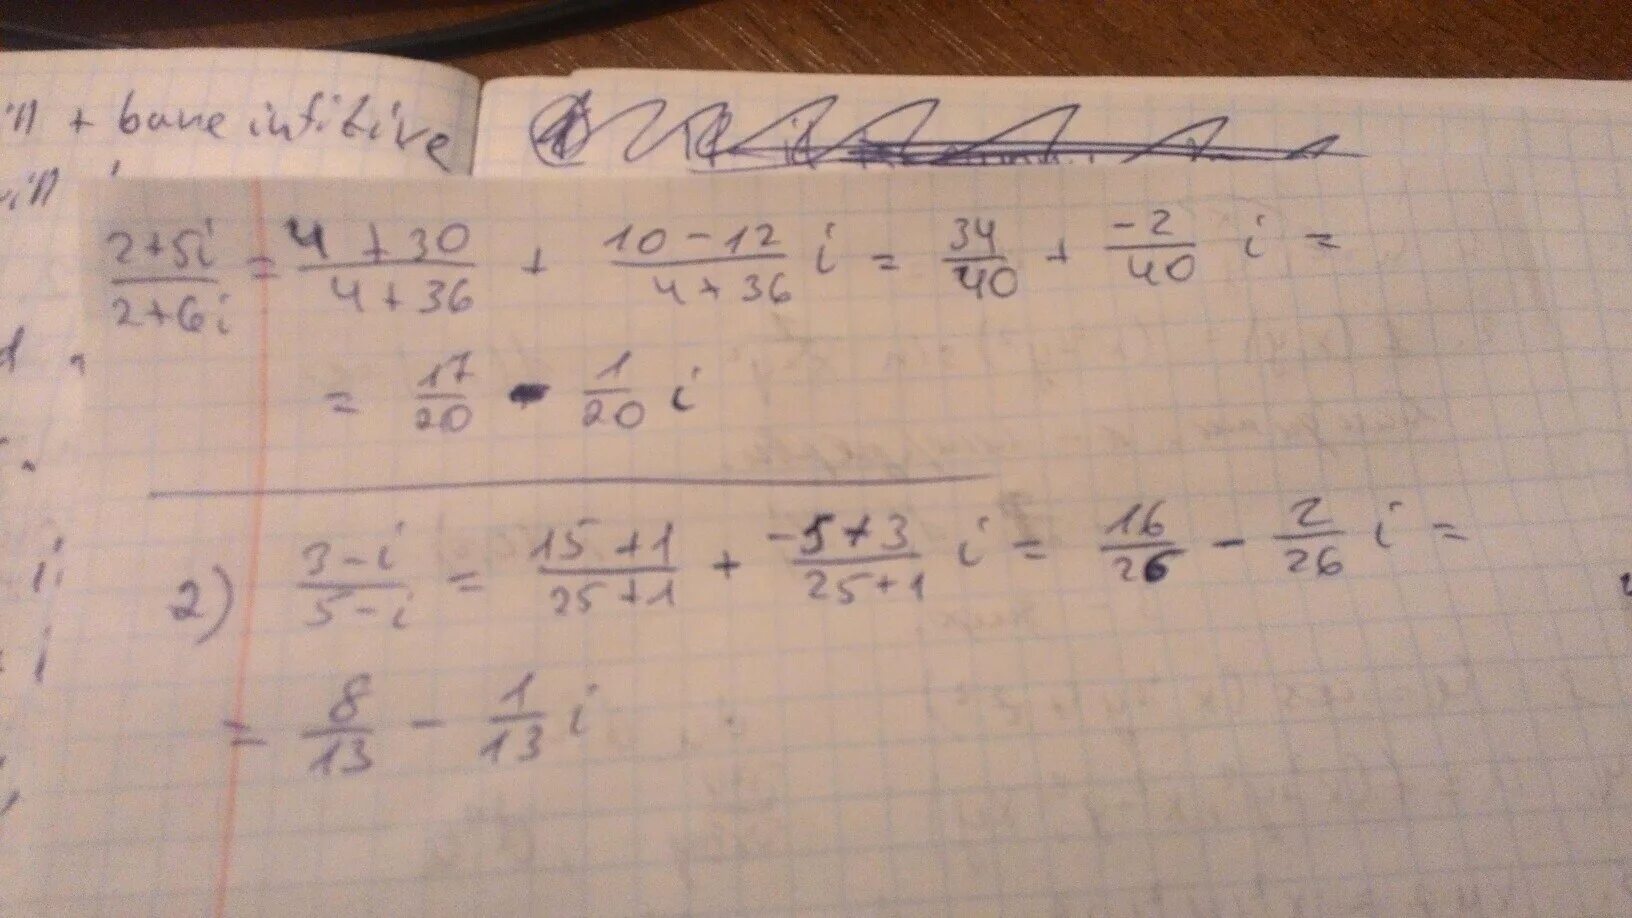 ill + bare infitive
(2+5i)/(2+6i) = (4+30)/(4+36) + (10-12)/(4+36) i = 34/40 + (-2)/40 i =
= 17/20 - 1/20 i
2) (3-i)/(5-i) = (15+1)/(25+1) + (-5+3)/(25+1) i = 16/26 - 2/26 i =
= 8/13 - 1/13 i